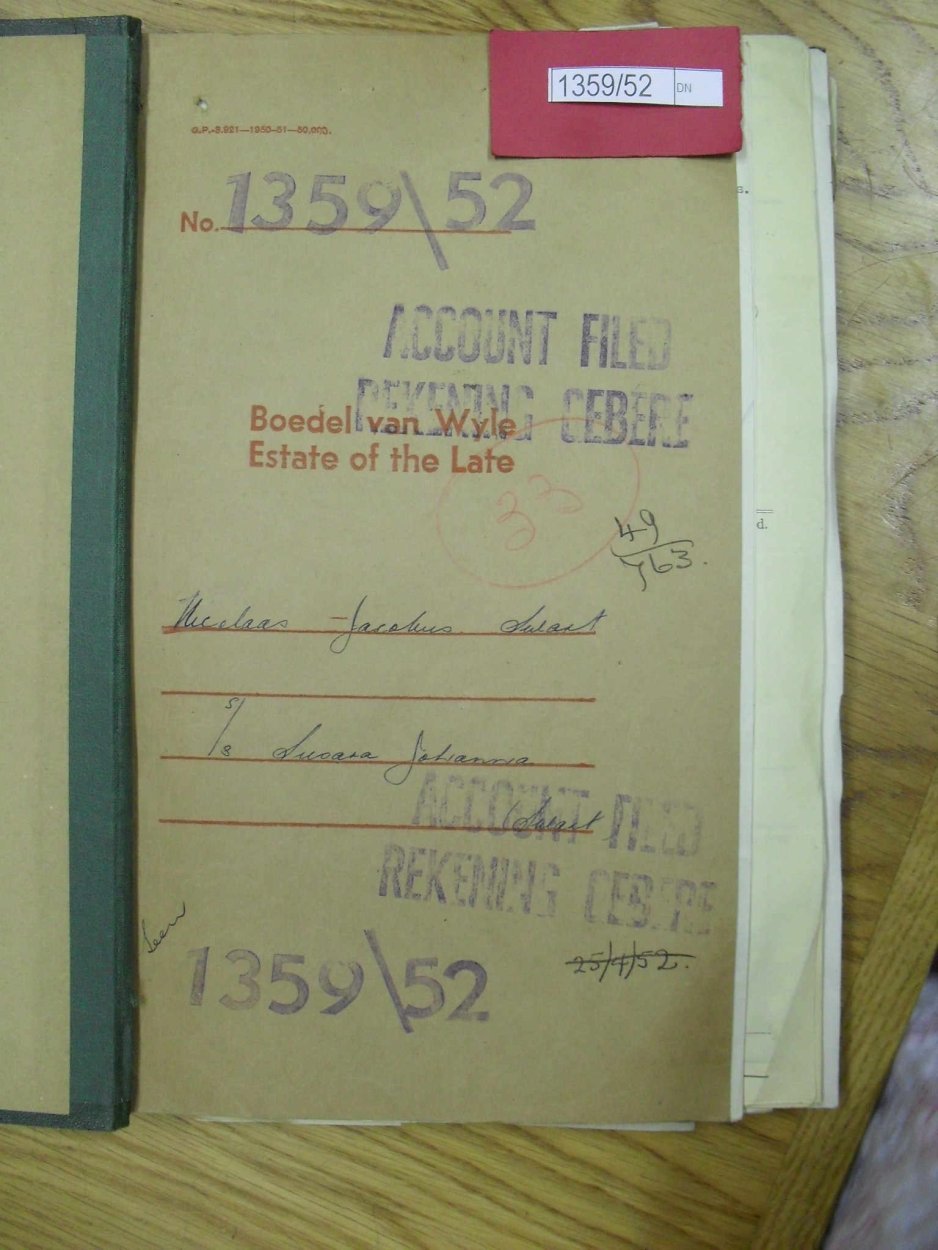 1359/52 DN
G.P.-S.921—1950-51—50,000.
No. 1359\52
ACCOUNT FILED
REKENING GEBERE
Boedel van Wyle
Estate of the Late
33
49
763.
Nicolaas Jacobus Swart
s/s Susara Johanna
(Swart
ACCOUNT FILED
REKENING GEBERE
Seen
1359\52
25/4/52.
d.